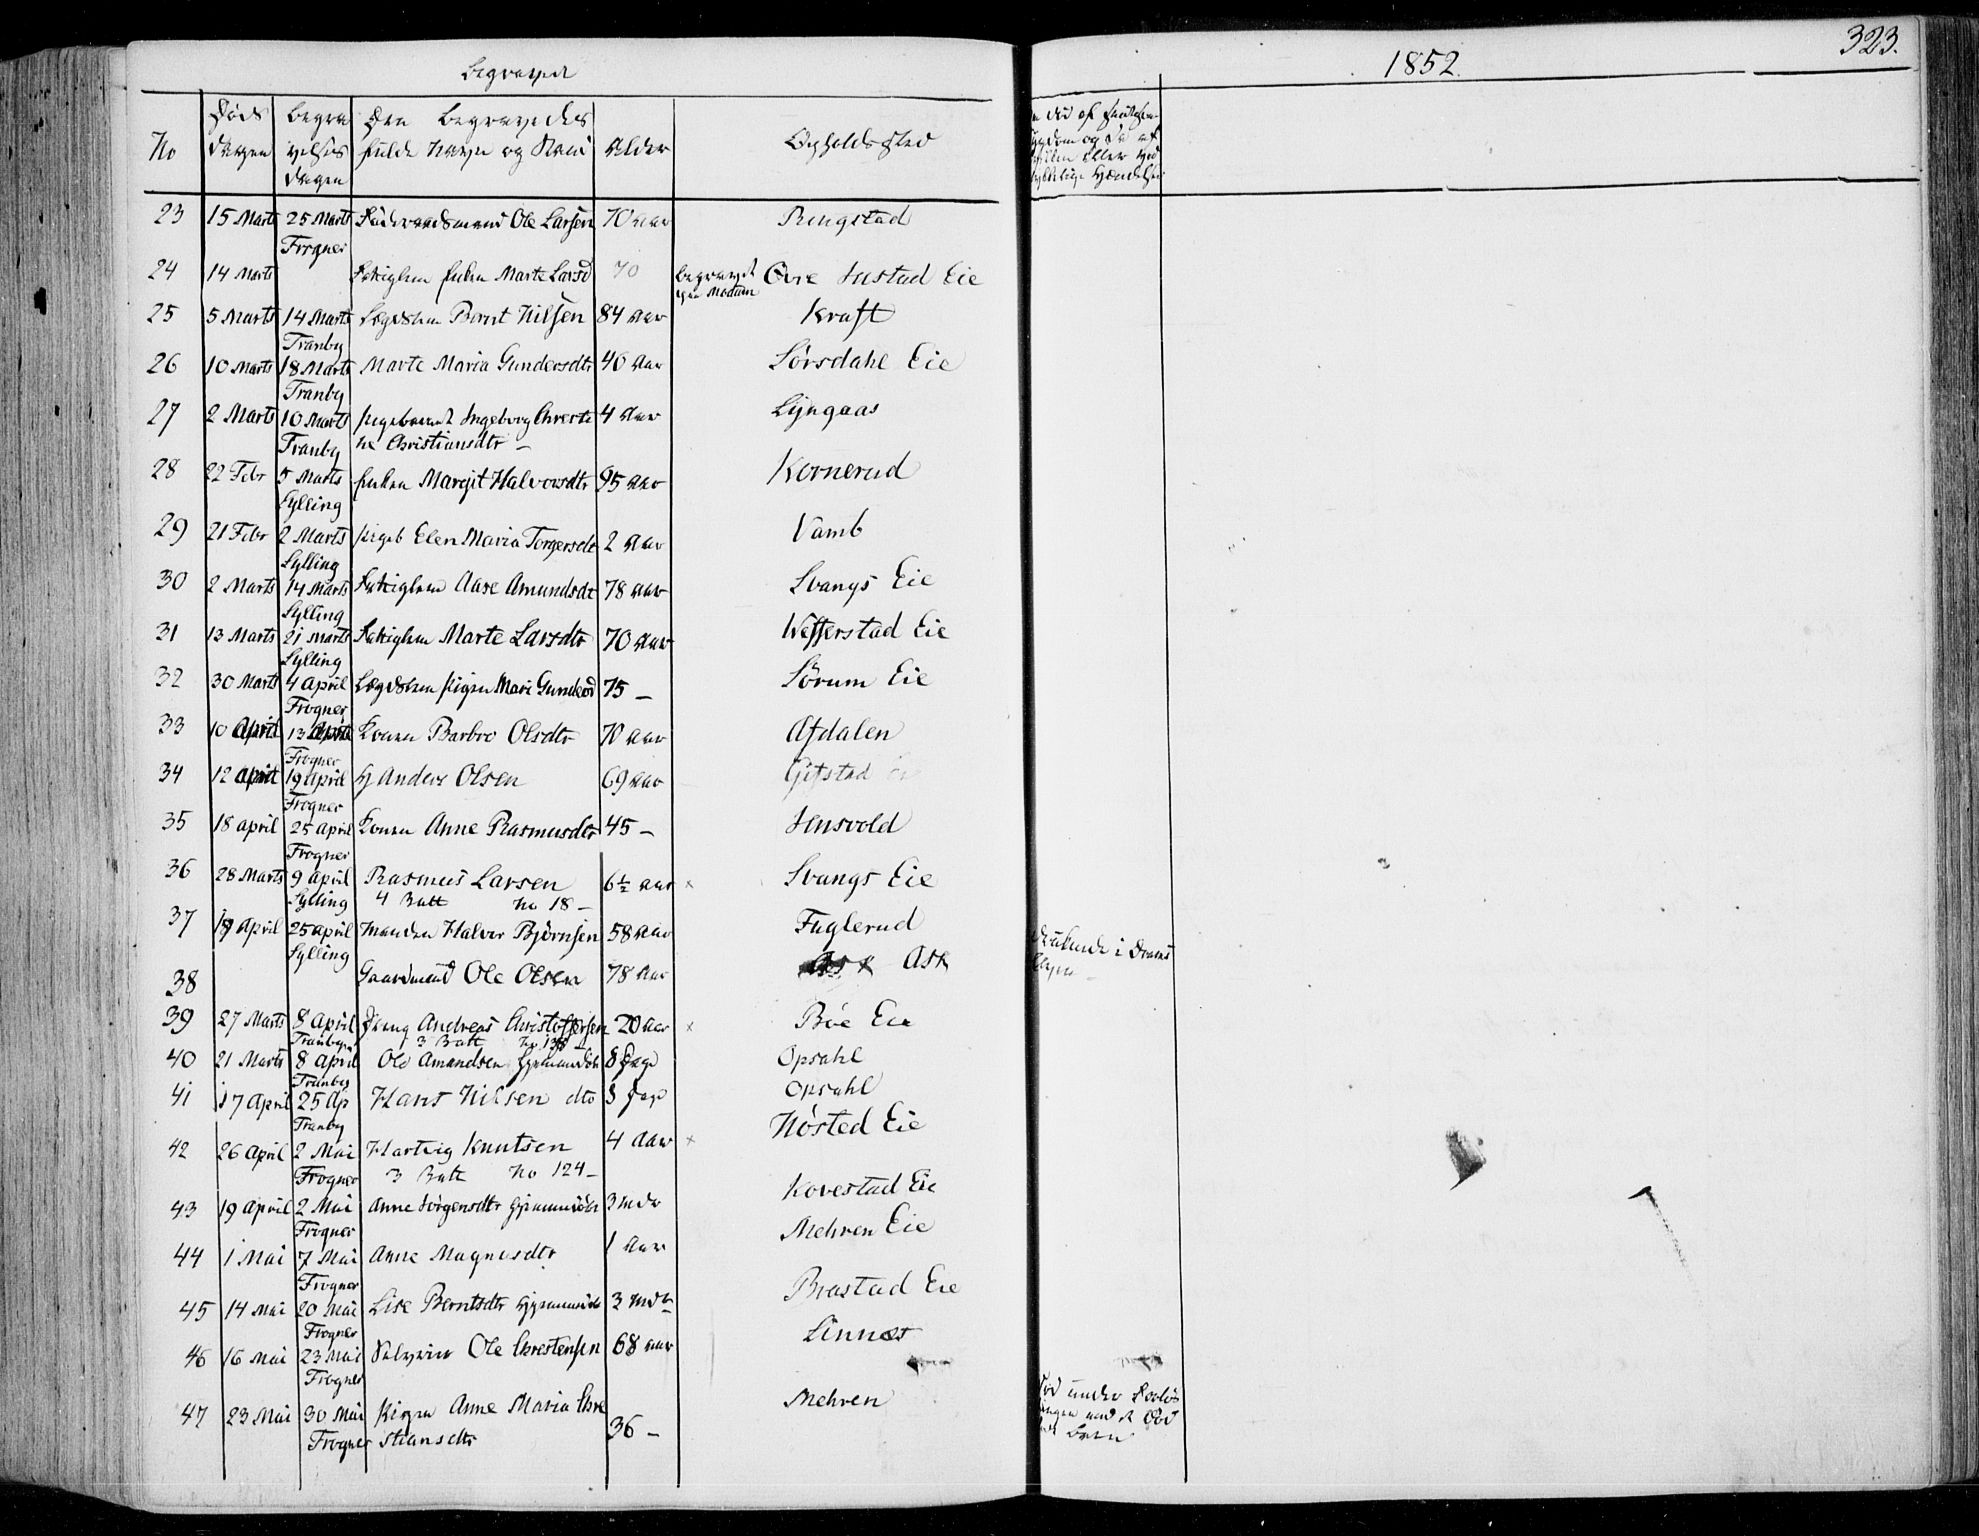 Begravede
1852.
323.
No
Døds
Dagen
Begra
velses
Dagen
Den Begravedes
fulde Navn og Stand
Alder
Opholdssted
23 15 Marts 25 Marts Ole Larsen 70 Aar Ringstad
Frogner
24 14 Marts Marte Larsd 70 begravet Øvre Justad Eie
paa Modum
25 5 Marts 14 Marts Lægdslem Bernt Nilsen 84 Aar Kraft
Tranby
26 10 Marts 18 Marts Marte Maria Gundersdtr 46 Aar Sørsdahl Eie
Tranby
27 2 Marts 10 Marts Pigebarnet Ingeborg Chresti 4 Aar Lyngaas
Tranby ne Christiansdtr –
28 22 Febr 5 Marts Enken Margit Halvorsdtr 95 Aar Kornerud
Sylling
29 21 Febr 2 Marts Pigeb Elen Maria Torgersdt 2 Aar Vamb
Sylling
30 2 Marts 14 Marts Fattiglem Aase Amundsdt 78 Aar Svangs Eie
Sylling
31 13 Marts 21 Marts Fattiglem Marte Larsdtr 70 Aar Wefferstad Eie
Sylling
32 30 Marts 4 April Lægdslem Pigen Mari Gundersd 75 – Sørum Eie
Frogner
33 10 April 13 April Konen Barbro Olsdtr 70 Aar Afdalen
Frogner
34 12 April 19 April Anders Olsen 69 Aar Gifstad
Frogner
35 18 April 25 April Konen Anne Rasmusdtr 45 – Hensvold
Frogner
36 28 Marts 9 April Rasmus Larsen 6½ Aar x Svangs Eie
Sylling 4 Batt No 18 –
37 19 April 25 April Manden Halvor Bjørnsen 58 Aar Fuglerud druknede i Drams
Sylling Elven –
38 Gaardmand Ole Olsen 78 Aar Ask
39 27 Marts 8 April Dreng Andreas Christoffersen 20 Aar x Bøe Eie
Tranby 3 Batt No
40 21 Marts 8 April Ole Amundsen Hjemmedøbt 8 Dage Opsahl
Tranby
41 17 April 25 Ap Hans Nilsen dto 8 Dage Opsahl
Tranby
42 26 April 2 Mai Hartvig Knutsen 4 Aar x Nøsted Eie
Frogner 3 Batt No 124 –
43 19 April 2 Mai Anne Jørgensdtr Hjemmedøbt 3 Mdr Kovestad Eie
Frogner
44 1 Mai 7 Mai Anne Magnusdtr 1 Aar Mehren Eie
Frogner
45 14 Mai 20 Mai Lise Berntsdtr Hjemmedøbt 3 Mdr Brastad Eie
Frogner
46 16 Mai 23 Mai Selveier Ole Chrestensen 68 Aar Linnes
Frogner
47 23 Mai 30 Mai Pigen Anne Maria Chre 36 – Mehren
Frogner stiansdtr